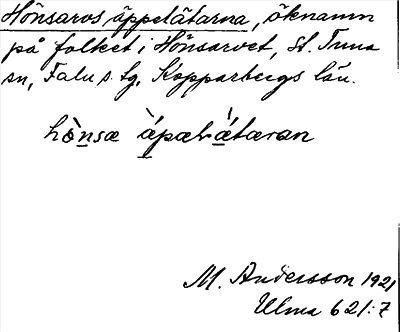 Hönsarvs äppelätarna, öknamn
på folket i Hönsarvet, St. Tuna
sn, Falu s. lg, Kopparbergs län.
hònsæ àpæl ætæran
M. Andersson 1921
Ulma 621:7